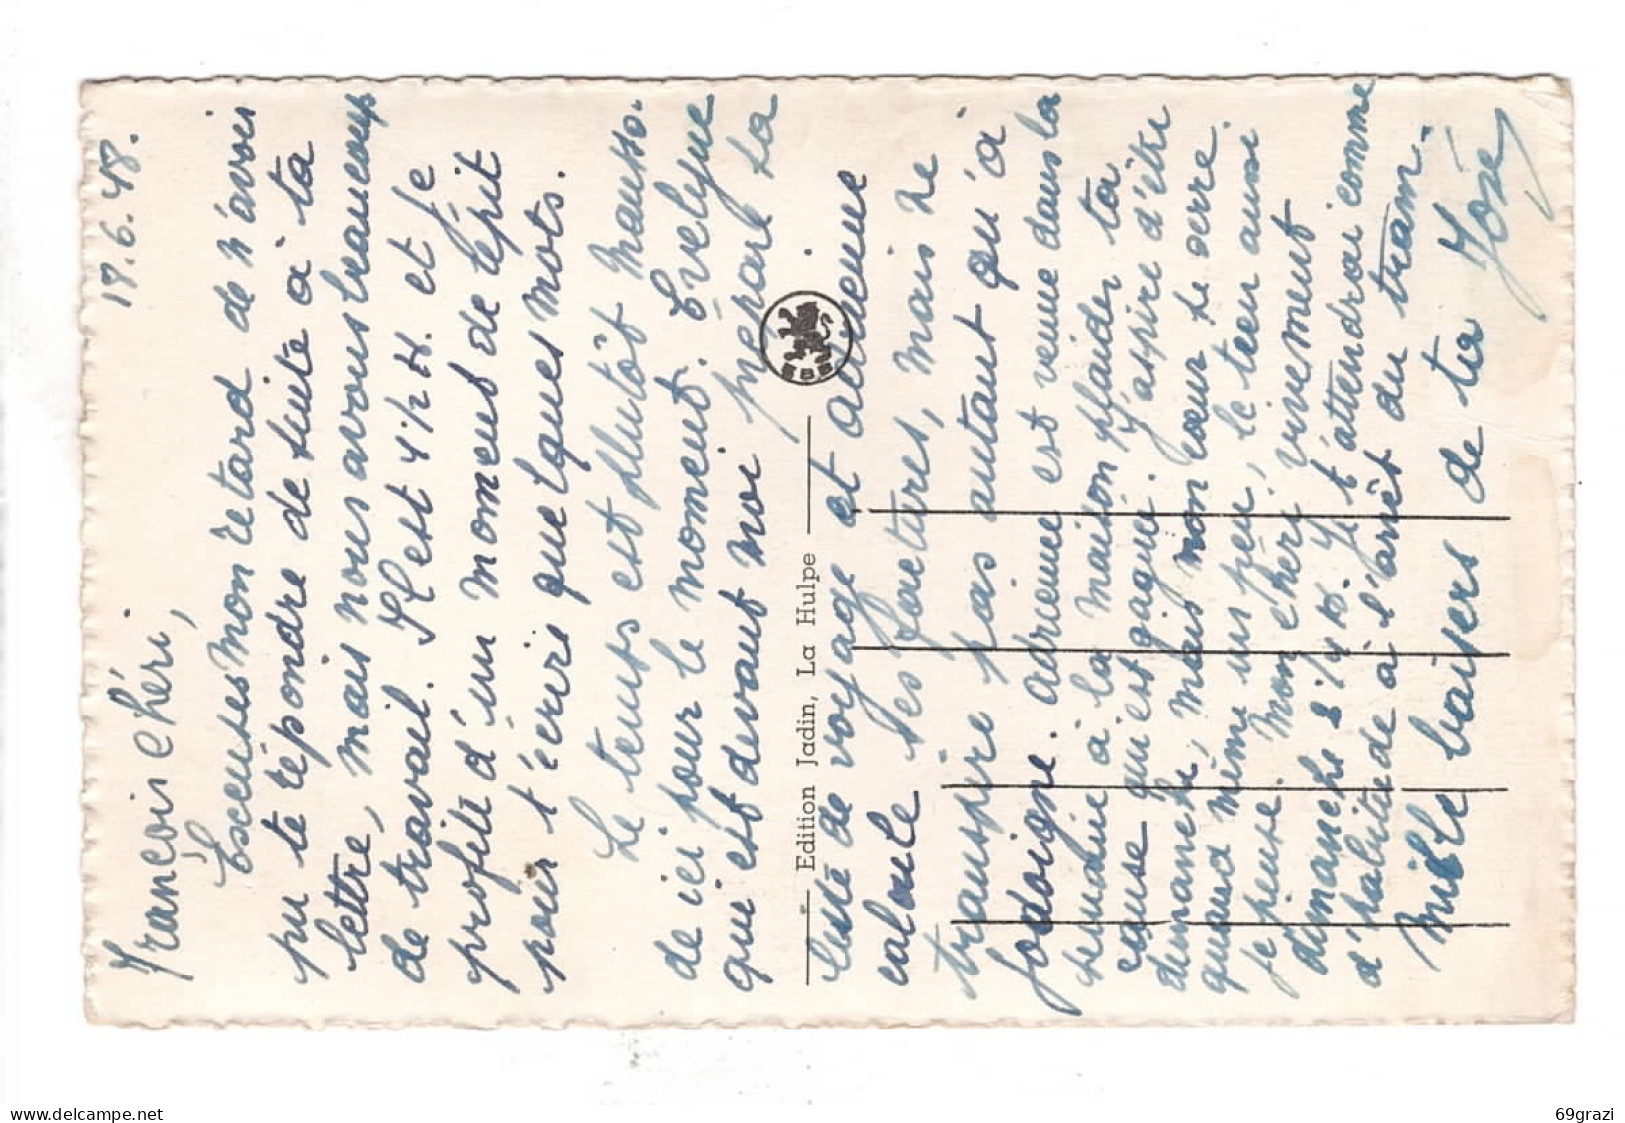 17.6.48.
François chéri,
Excuses mon retard de n'avoir
pu te répondre de suite à ta
lettre, mais nous avons beaucoup
de travail. Il est 4 1/2 H. et je
profite d'un moment de répit
pour t'écrire quelques mots.
Le temps est plutôt mausso-
de ici pour le moment. Evelyne
qui est devant moi prépare sa
liste de voyage et Adrienne
calcule ses factures, mais ne
transpire pas autant qu'à
Jodoigne. Adrienne est venue dans la
semaine à la maison plaider ta
cause qui est gagnée. J'aspire d'être
dimanche, mais mon cœur se serre
quand même un peu, le tien aussi
je pense. Mon chéri, vivement
dimanche 8 1/4 H. Je t'attendrai comme
d'habitude à l'arrêt du tram.
Mille baisers de ta José
Edition Jadin, La Hulpe
www.delcampe.net
69grazi